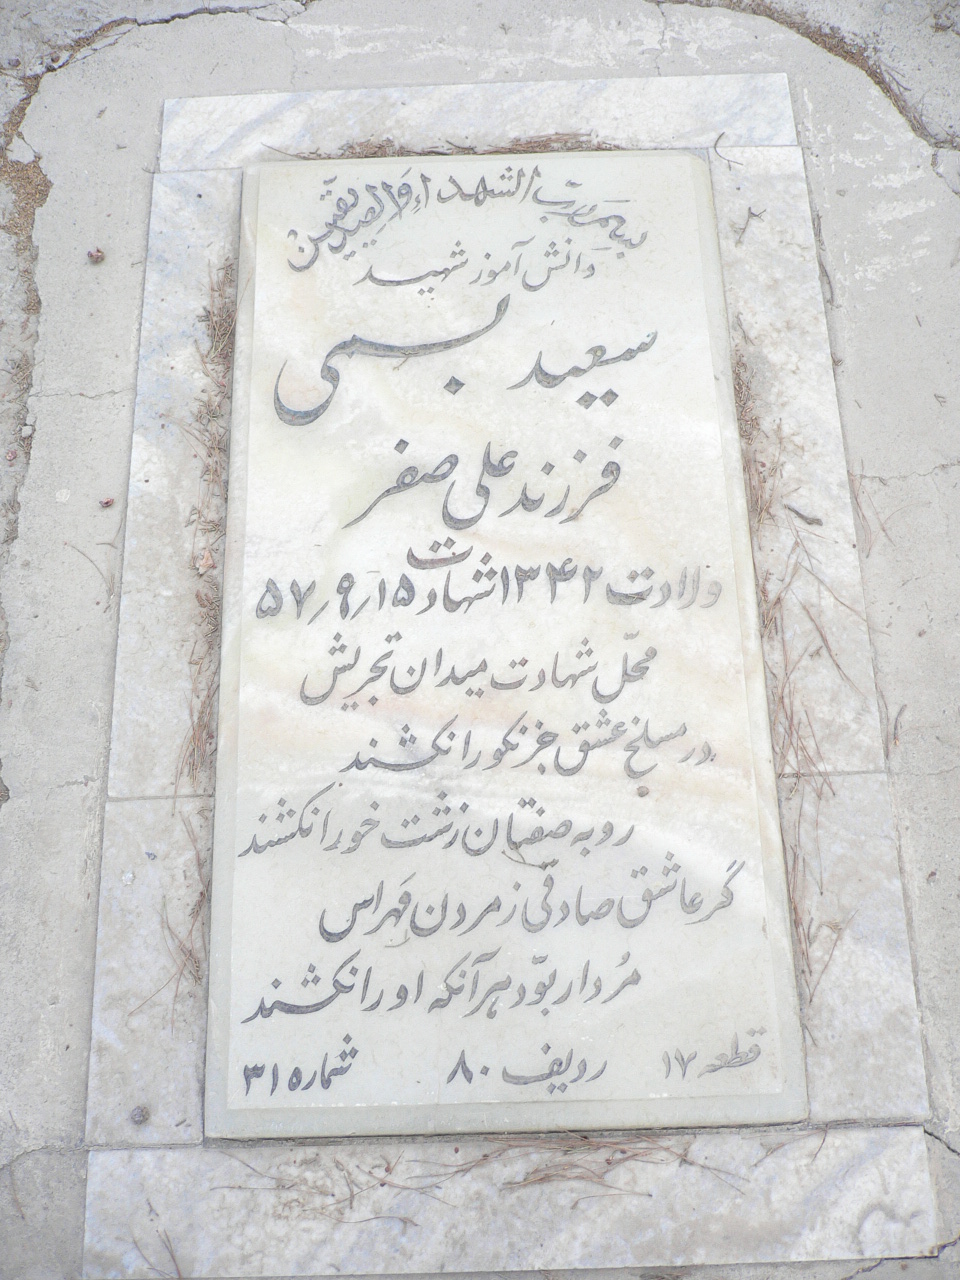 بسم رب الشهداء و الصدیقین
دانش آموز شهید
سعید بسمی
فرزند علی صفر
ولادت ۱۳۴۲ شهادت ۱۵٫۹٫۵۷
محلّ شهادت میدان تجریش
در مسلخ عشق جز نکو را نکشند
روبه صفتان زشت خو را نکشند
گر عاشق صادقی ز مردن مَهراس
مُردار بوّد هر آنکه او را نکشند
قطعه ۱۷ ردیف ۸۰ شماره ۳۱